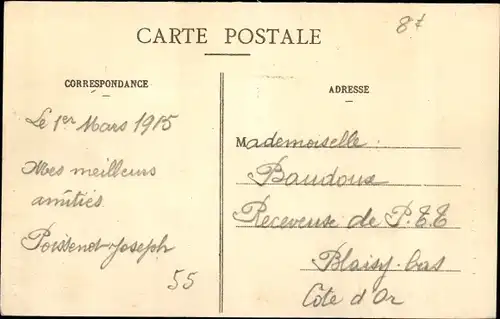 CARTE POSTALE
8f
CORRESPONDANCE
Le 1er Mars 1915
Mes meilleurs
amitiés
Joseph
55
ADRESSE
Mademoiselle :
Baudoux
Receveuse de P.T.T
Blaisy-bas
Côte d'Or